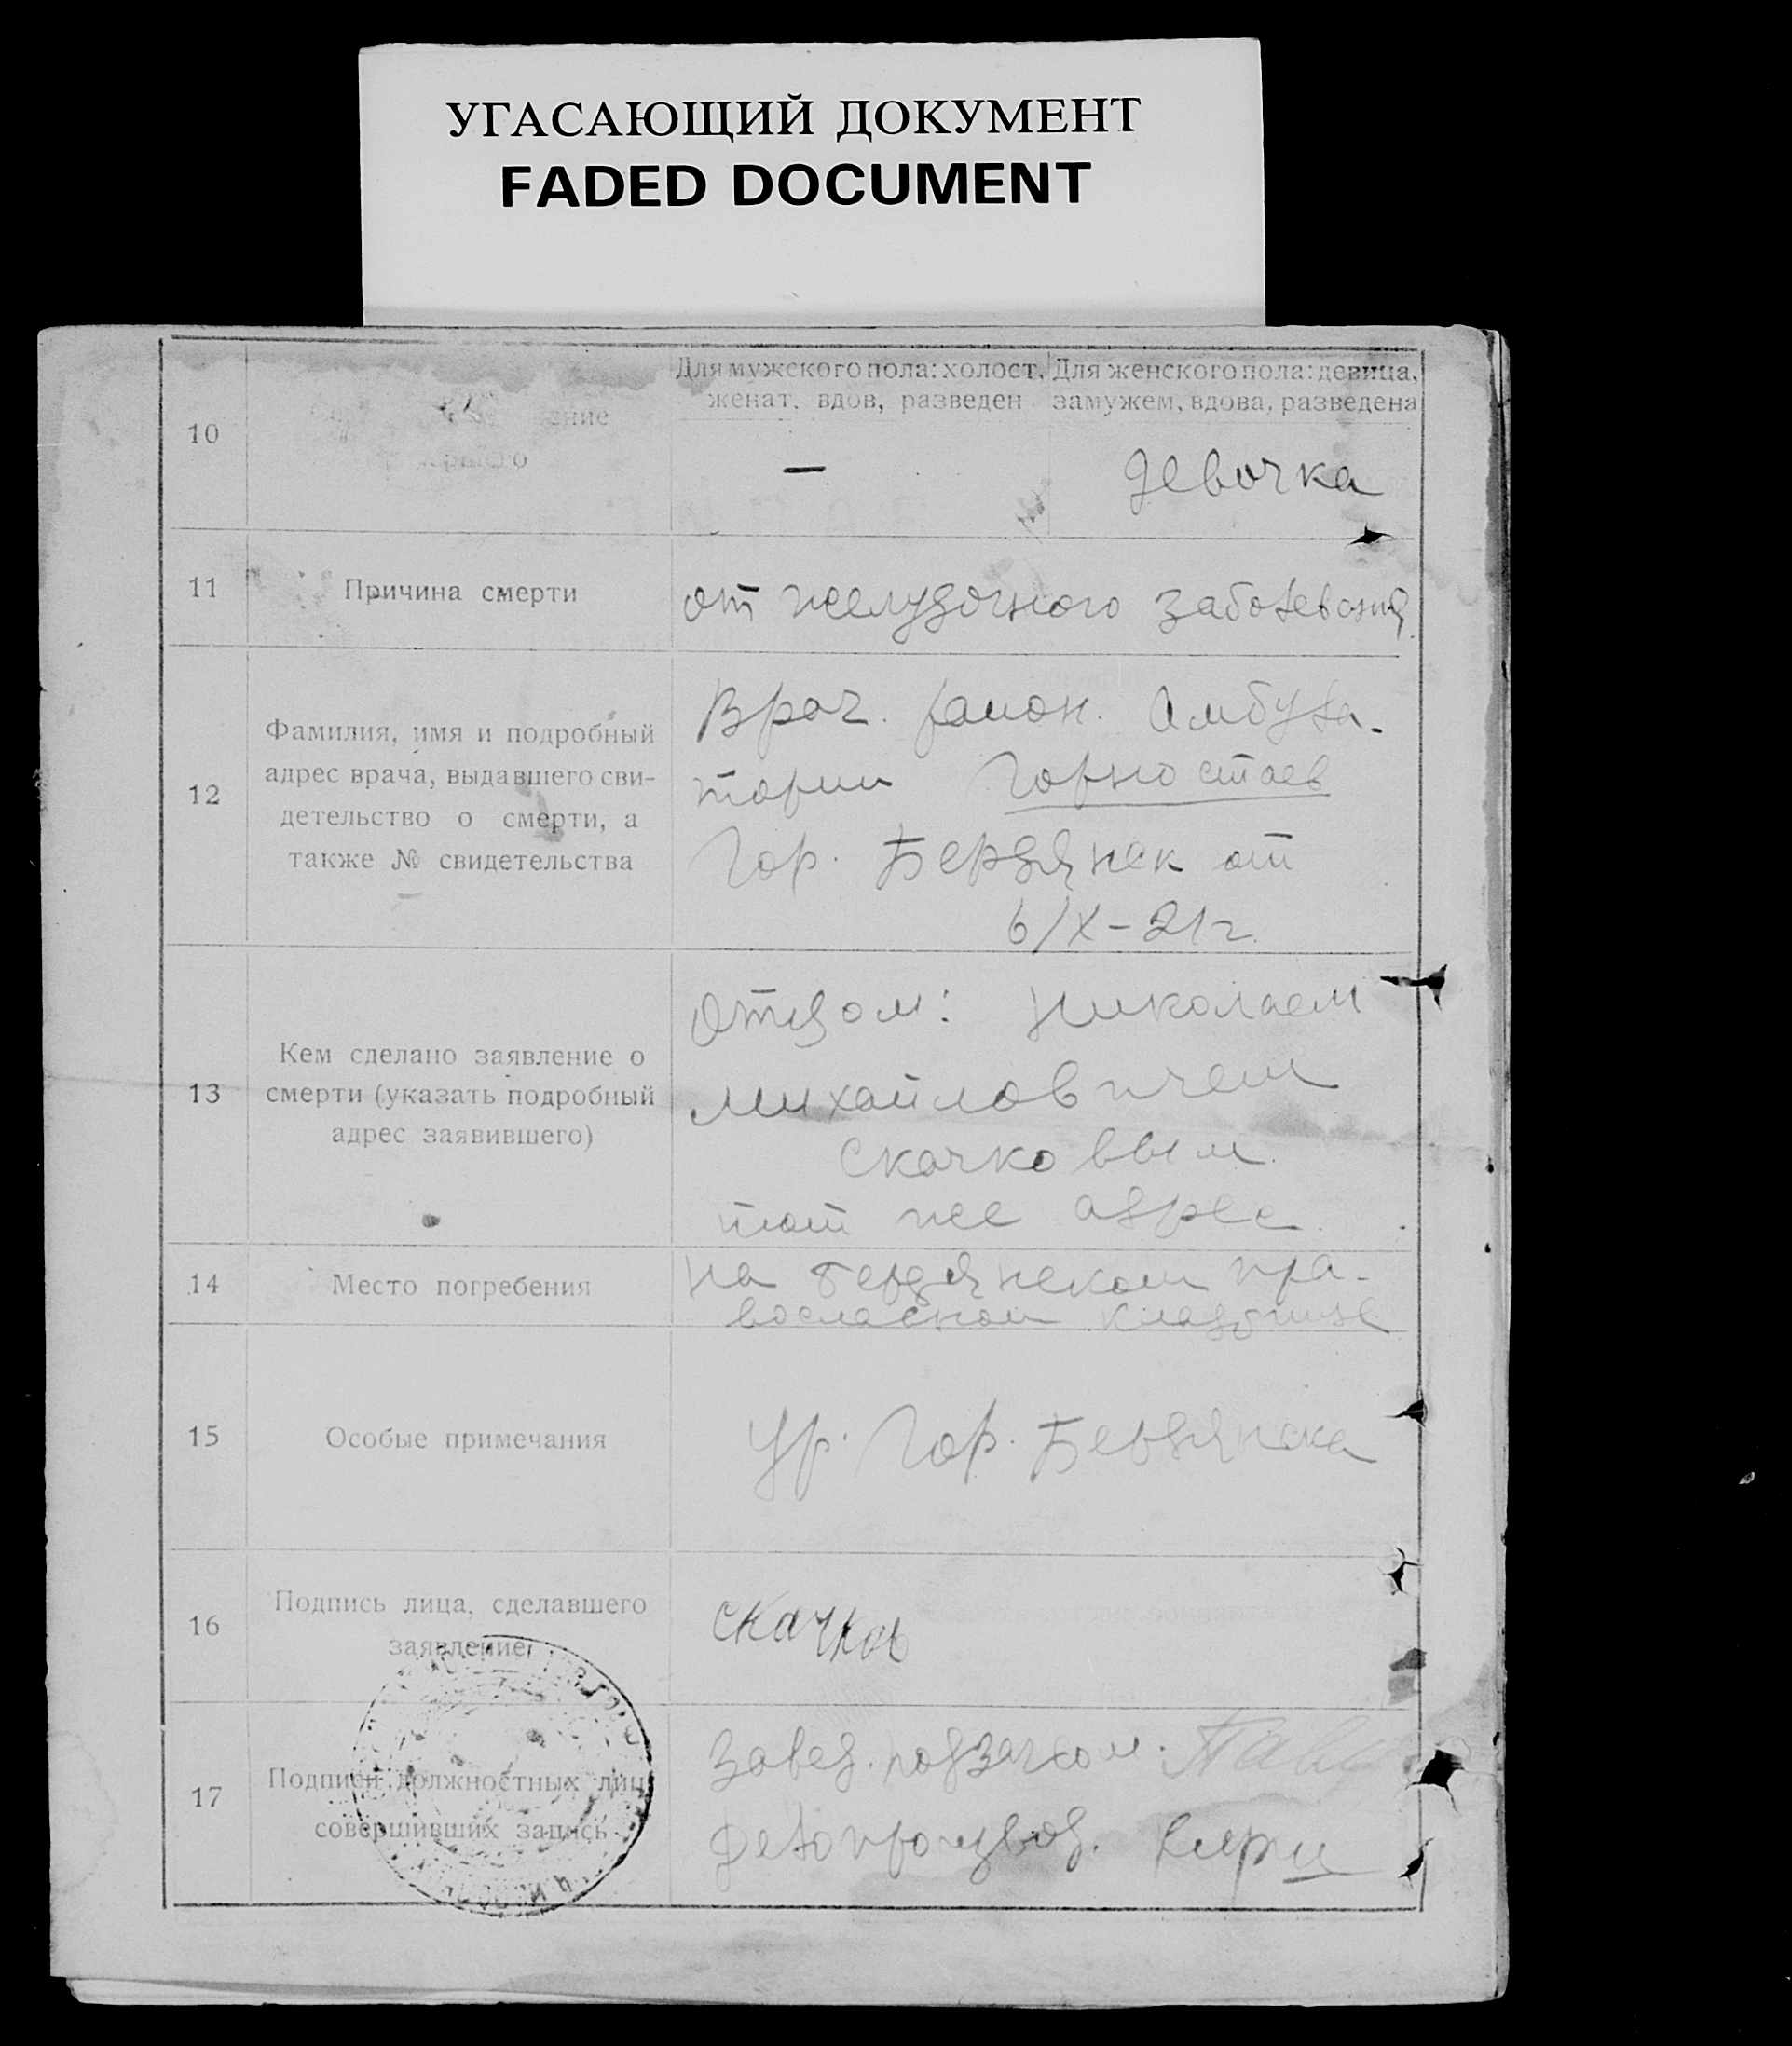 УГАСАЮЩИЙ ДОКУМЕНТ
FADED DOCUMENT
Для мужского пола: холост,
женат, вдов, разведен
Для женского пола: девица,
замужем, вдова, разведена
10
ение
—
девочка
11
Причина смерти
от желудочного заболевания
12
Фамилия, имя и подробный
адрес врача, выдавшего сви-
детельство о смерти, а
также № свидетельства
Врач. район. Амбула-
тории Горностаев
Гор. Бердянск от
6/X-21 г.
13
Кем сделано заявление о
смерти (указать подробный
адрес заявившего)
Отцом: Николаем
Михайловичем
Скачковым
тот же адрес.
14
Место погребения
на бердянском пра-
вославном кладбище
15
Особые примечания
Ур. Гор. Бердянска
16
Подпись лица, сделавшего
заявление
Скачков
17
Подписи должностных лиц,
совершивших запись
Завед. подзагсом.
Делопроизвод.